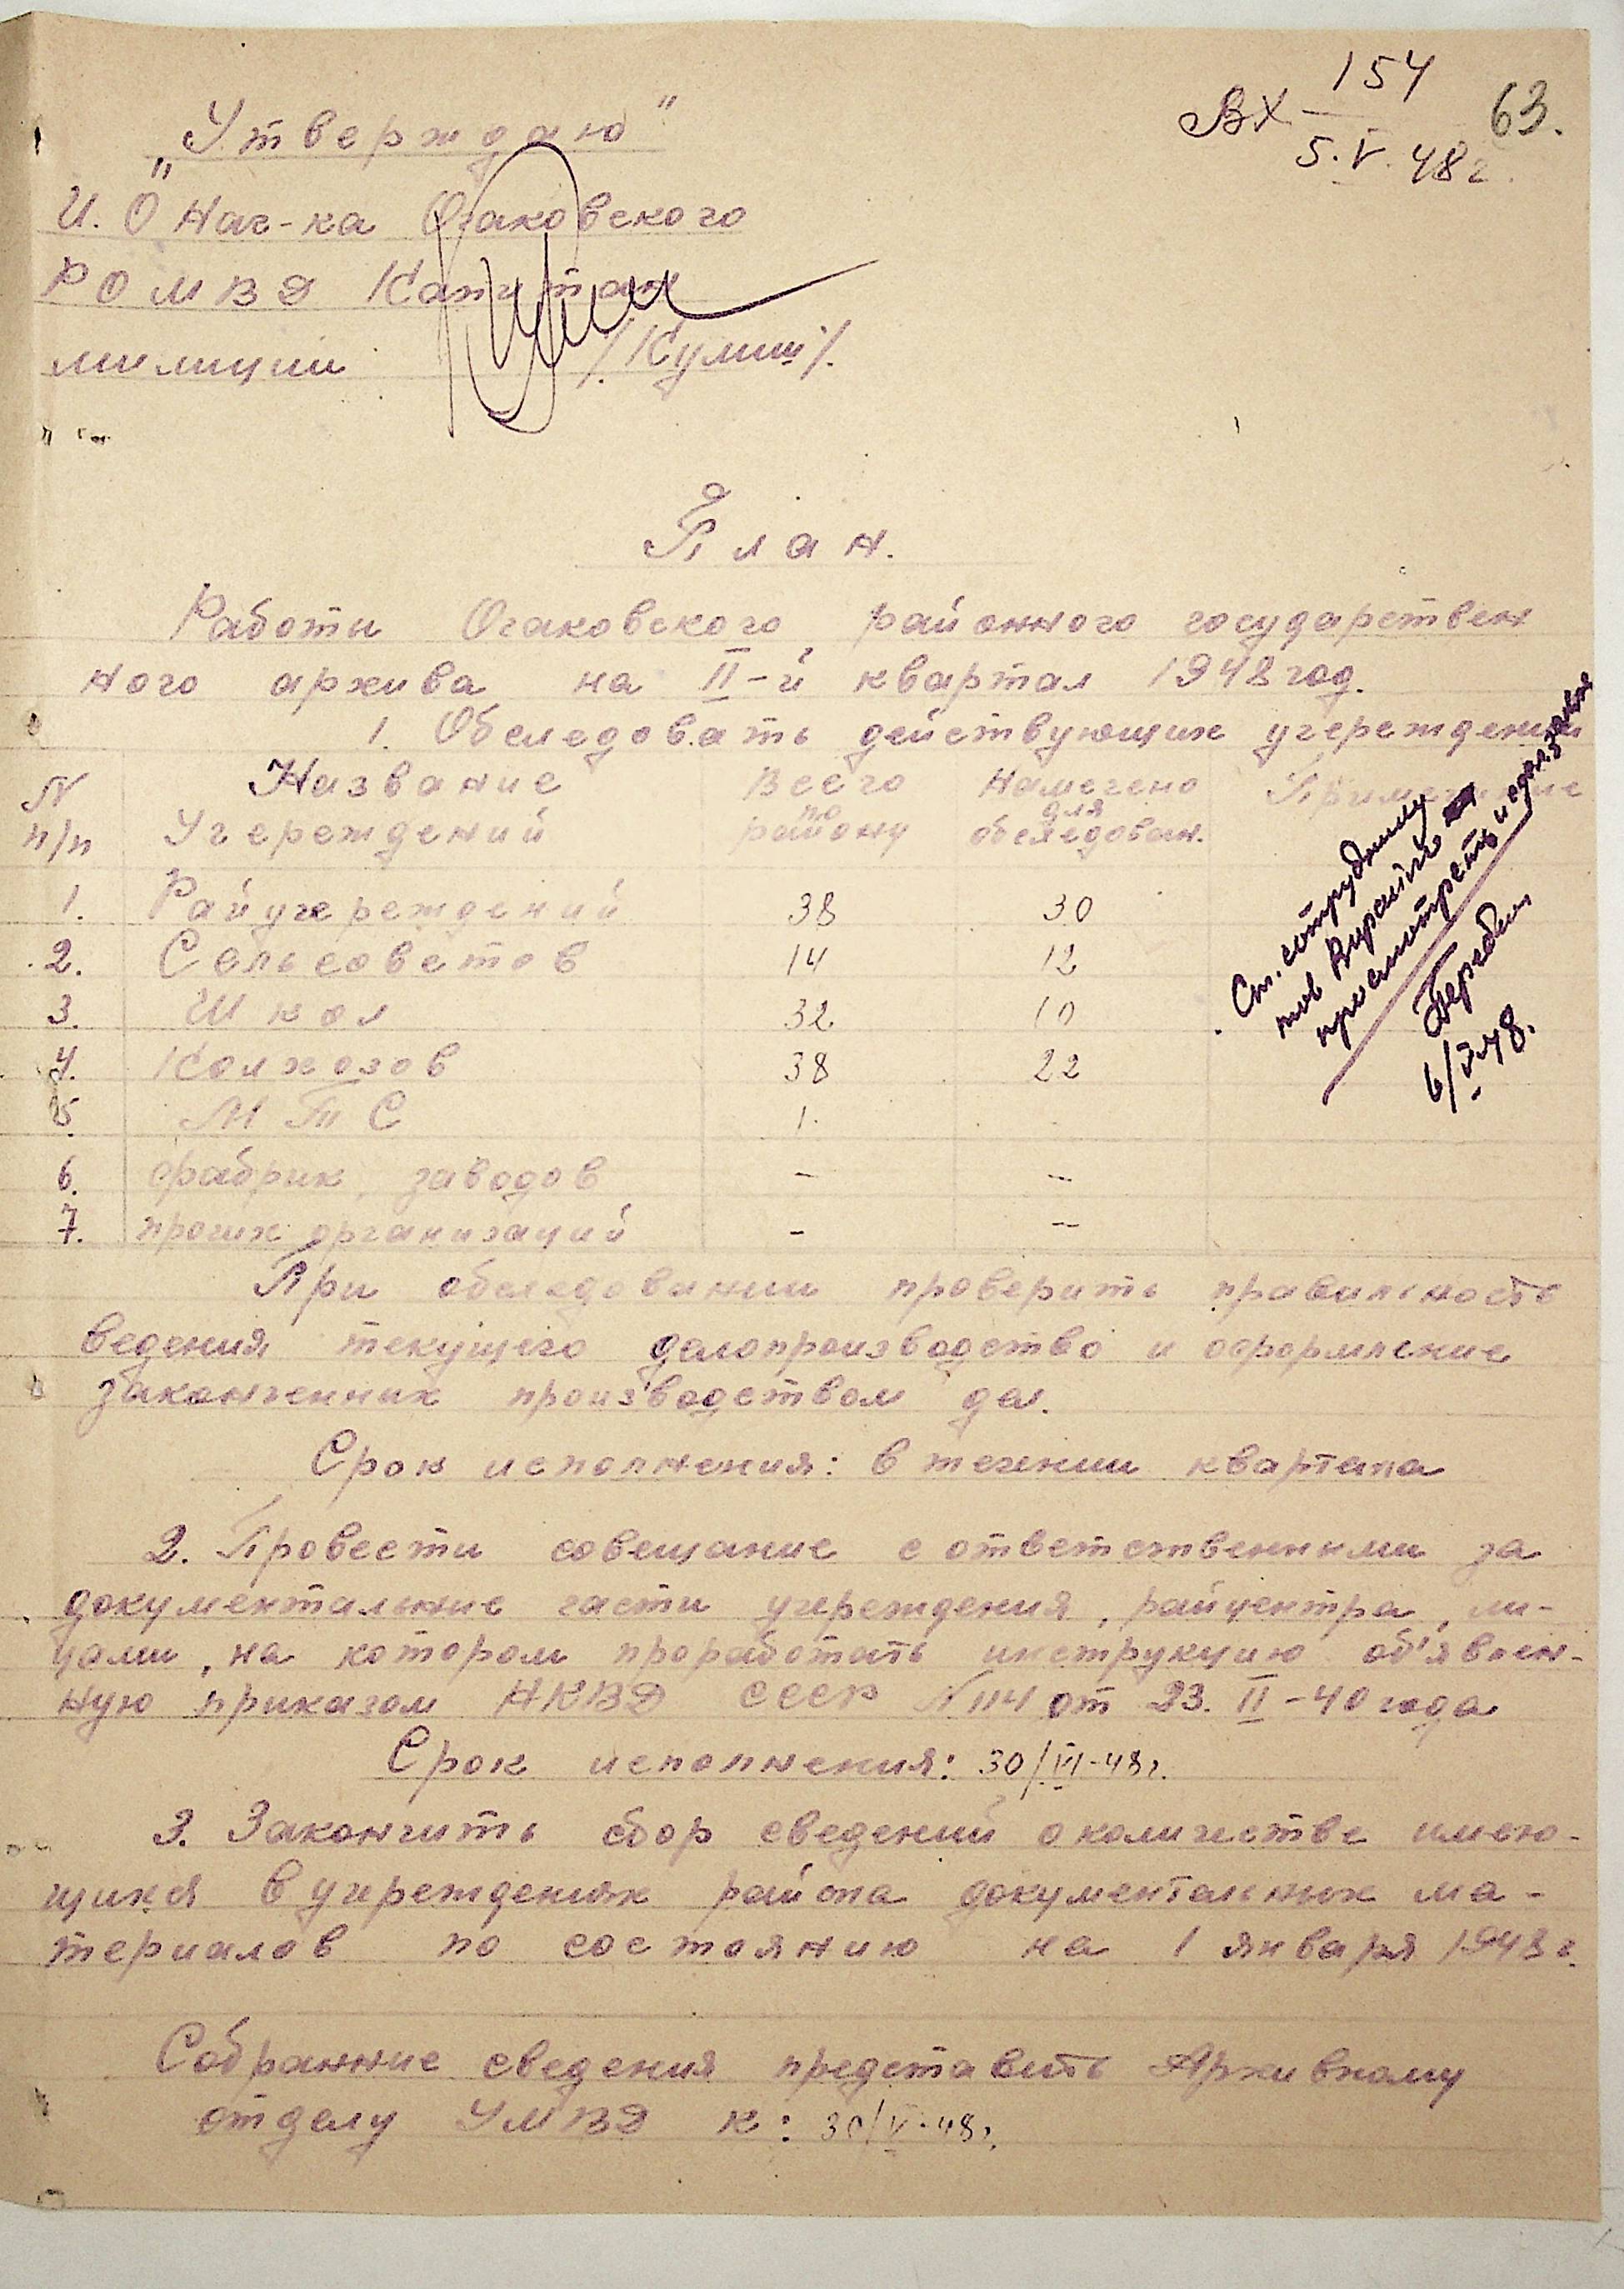 Вх 154
5.V.48г.
63.
„Утверждаю"
И.О Нач-ка Очаковского
РОМВД Капитан
милиции /Кулиш/.
План.
Работи Очаковского районного государствен
ного архива на II-й квартал 1948 год.
1. Обследовать действующих учереждений
N п/п Название Учереждений Всего по району Намечено для обследован. Примечание
1. Райучереждений 38 30
2. Сельсоветов 14 12
3. Школ 32 10
4. Колхозов 38 22
5. МТС 1.
6. фабрик, заводов - -
7. прочих организаций - -
Ст. сотруднику
тов
просмотреть и
6/V-48.
При обследовании проверить правильность
ведения текущего делопроизводство и оформление
законченних производством дел.
Срок исполнения: в течении квартала
2. Провести совещание с ответственними за
документальние части учереждения, райцентра, ли-
цами, на котором проработать инструкцию об'явлен-
ную приказом НКВД СССР N 114 от 23.II-40 года
Срок исполнения: 30/VI-48г.
3. Закончить сбор сведений о количестве имею-
щихся в учреждениях района документальных ма-
териалов по состоянию на 1 января 1948 г.
Собранние сведения представить Архивному
отделу УМВД к: 30/V-48г.